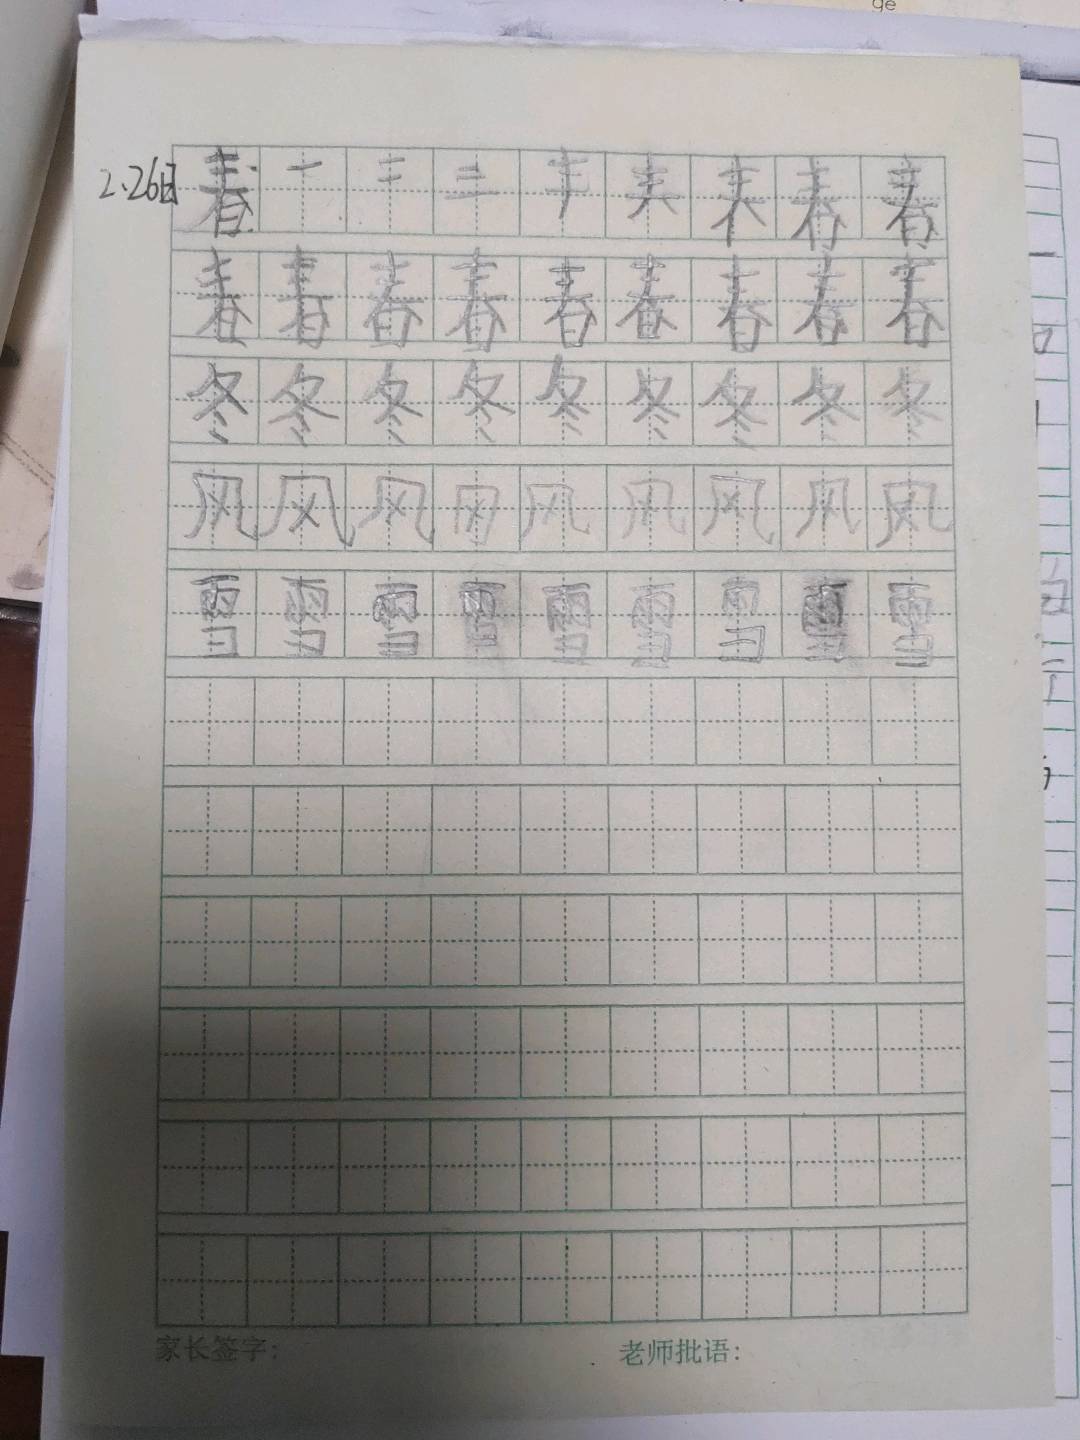 ge
2.26日
春 一 二 三 丰 𡗗 春 春
春 春 春 春 春 春 春 春 春
冬 冬 冬 冬 冬 冬 冬 冬 冬
风 风 风 风 风 风 风 风 风
雪 雪 雪 雪 雪 雪 雪 雪 雪
家长签字：
老师批语：